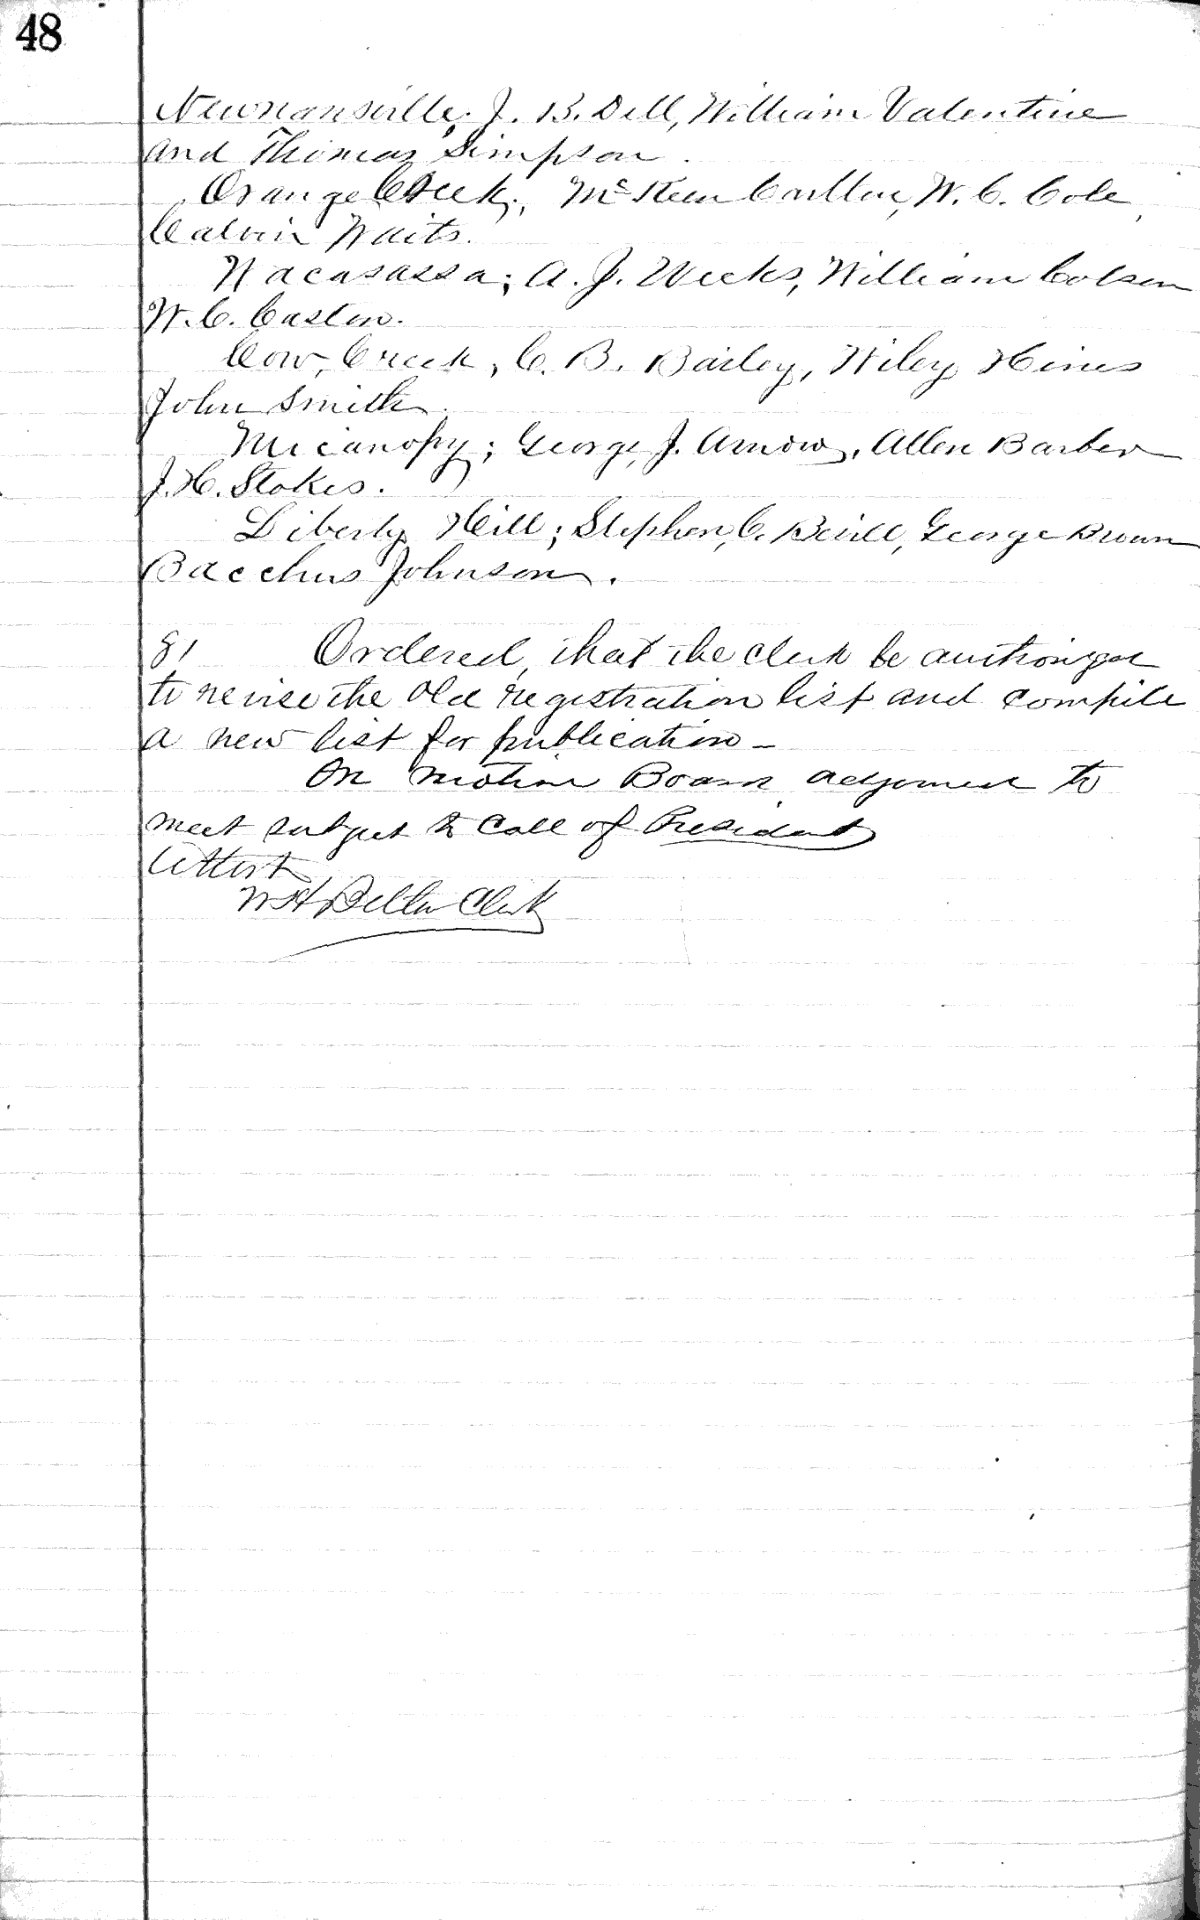 48
Newnansville; J. B. Dell, William Valentine
and Thomas Simpson.
Orange Creek; McKeen Carlton, W. C. Cole,
Calvin Waits.
Wacasassa; A. J. Weeks, William Colson
W. C. Caston.
Cow Creek, C. B. Bailey, Wiley Hines
John Smith.
Micanopy; George J. Arnow, Allen Barber
J. H. Stokes.
Liberty Hill; Stephen C. Bevill, George Brown
Bacchus Johnson.
81 Ordered, that the clerk be authorized
to revise the old registration list and compile
a new list for publication -
On motion Board adjourned to
meet subject to Call of President
Attest
W H Belton Clerk